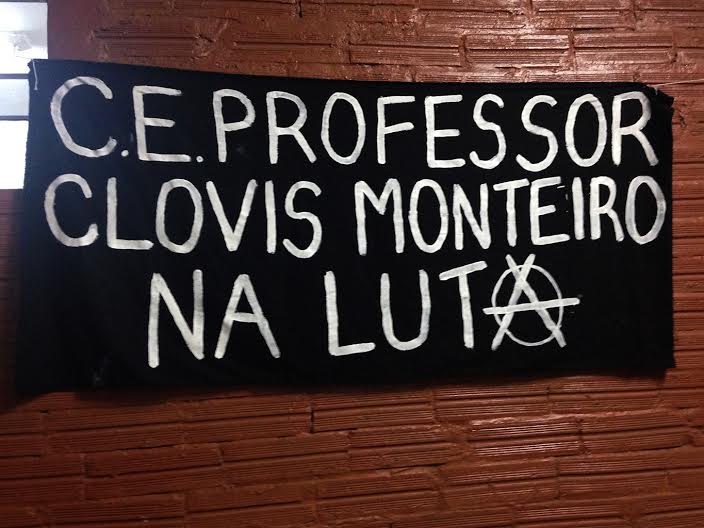 C.E. PROFESSOR
CLOVIS MONTEIRO
NA LUTA